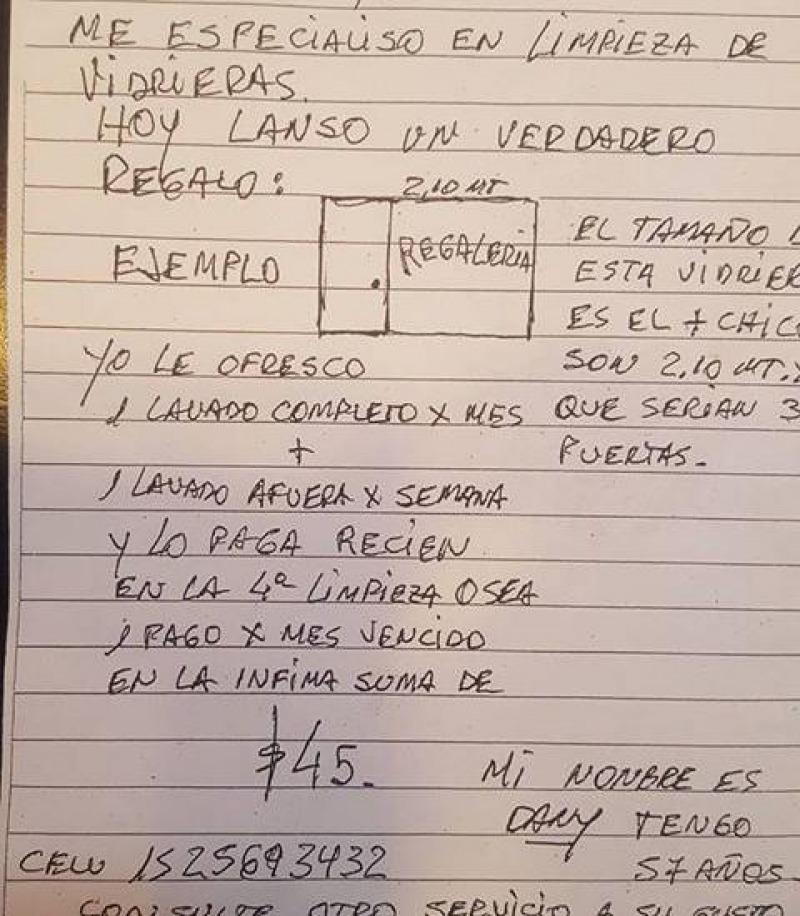 ME ESPECIALISO EN LIMPIEZA DE
VIDRIERAS.
HOY LANSO UN VERDADERO
REGALO:
2,10 MT
REGALERIA
EJEMPLO
EL TAMAÑO
ESTA VIDRIER
ES EL + CHICO
SON 2.10 MT.
QUE SERIAN 3
PUERTAS.-
YO LE OFRESCO
1 LAVADO COMPLETO X MES
+
1 LAVADO AFUERA X SEMANA
Y LO PAGA RECIEN
EN LA 4ª LIMPIEZA OSEA
1 PAGO X MES VENCIDO
EN LA INFIMA SUMA DE
$45.-
MI NONBRE ES
DANY TENGO
57 AÑOS.
CELU 1525693432
CONSULTE OTRO SERVICIO A SU GUSTO